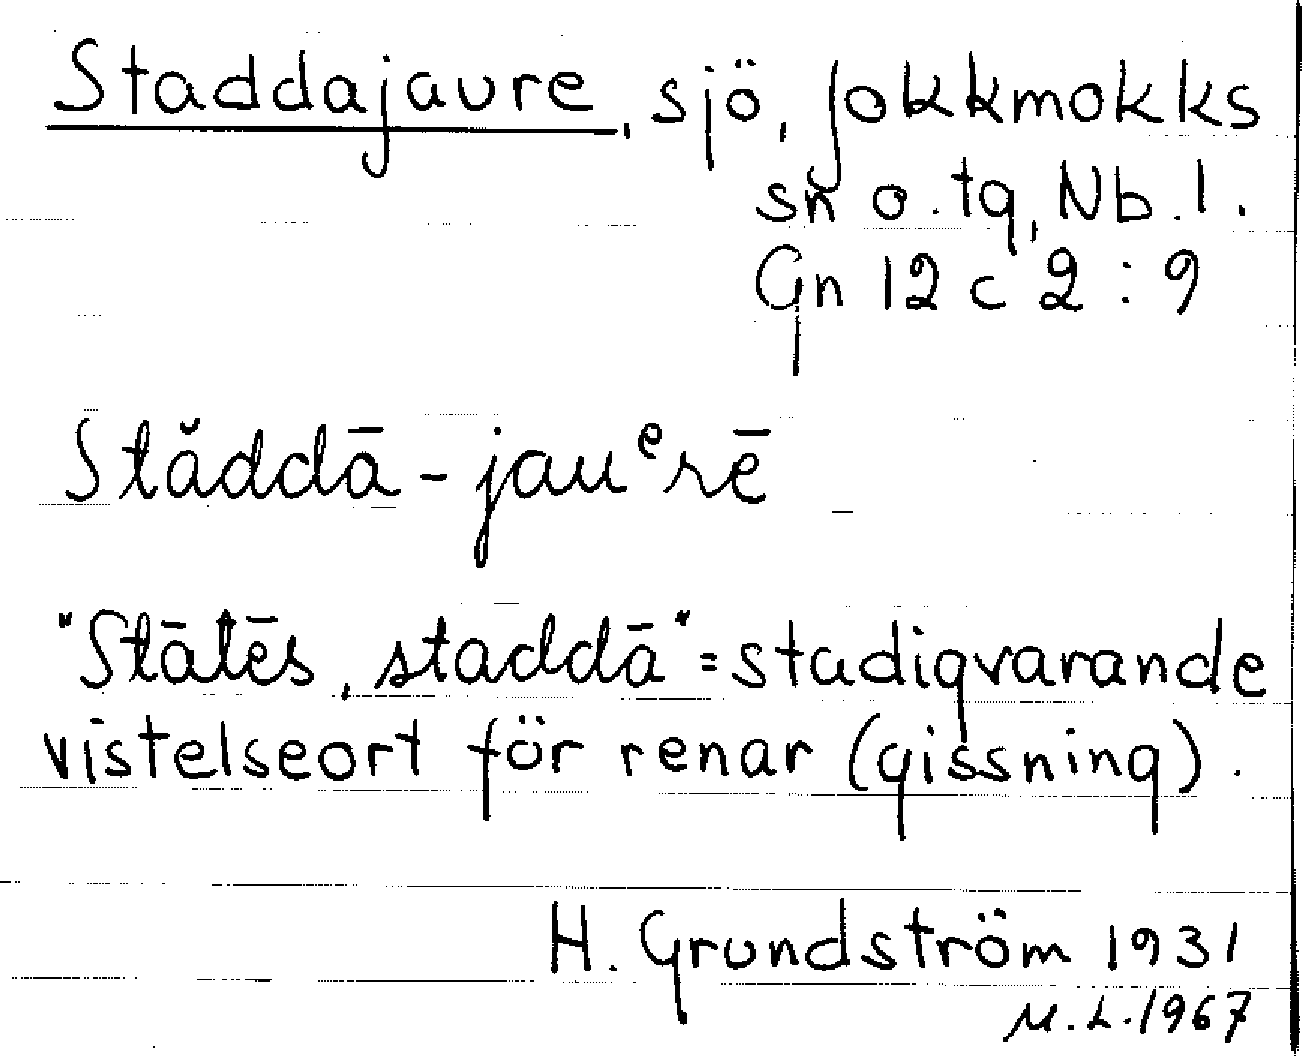 Staddajaure, sjö, Jokkmokks
sn o. tg, Nb. l.
Gn 12 c 2 : 9
Stăddā - jauᵉrē
"Stātēs, staddā" = stadigvarande
vistelseort för renar (gissning).
H. Grundström 1931
M. L. 1967